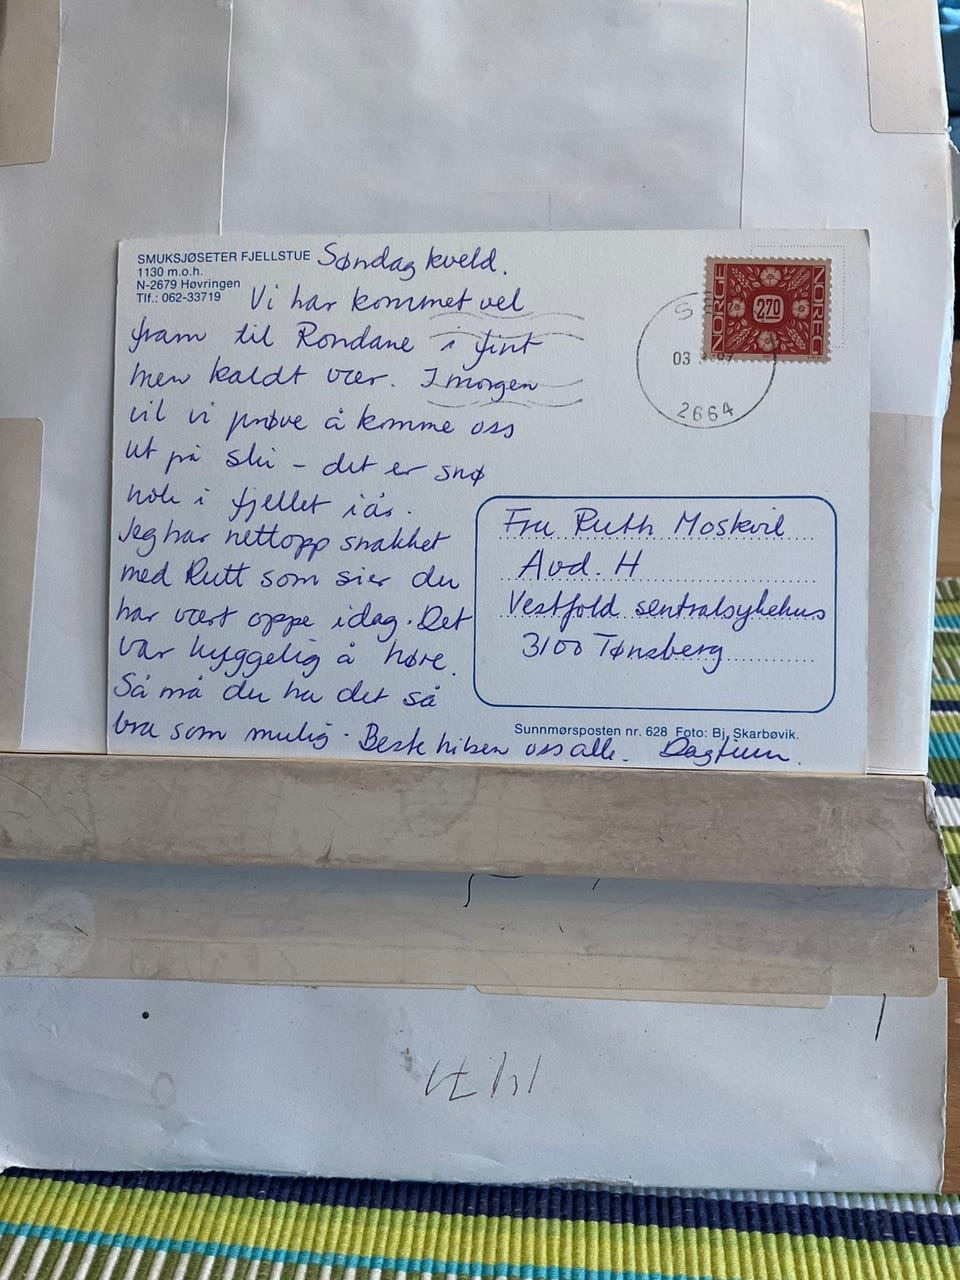 SMUKSJØSETER FJELLSTUE
1130 m.o.h.
N-2679 Høvringen
Tlf.: 062-33719
Søndag kveld.
Vi har kommet vel
fram til Rondane i fint
men kaldt vær. I morgen
vil vi prøve å komme oss
ut på ski - det er snø
nok i fjellet i år.
Jeg har nettopp snakket
med Rutt som sier du
har vært oppe idag. Det
var hyggelig å høre.
Så må du ha det så
bra som mulig. Beste hilsen oss alle. Dagfinn.
NORGE
2,70
NOREG
03
2664
Fru Ruth Moskvil
Avd. H
Vestfold sentralsykehus
3100 Tønsberg
Sunnmørsposten nr. 628 Foto: Bj. Skarbøvik.